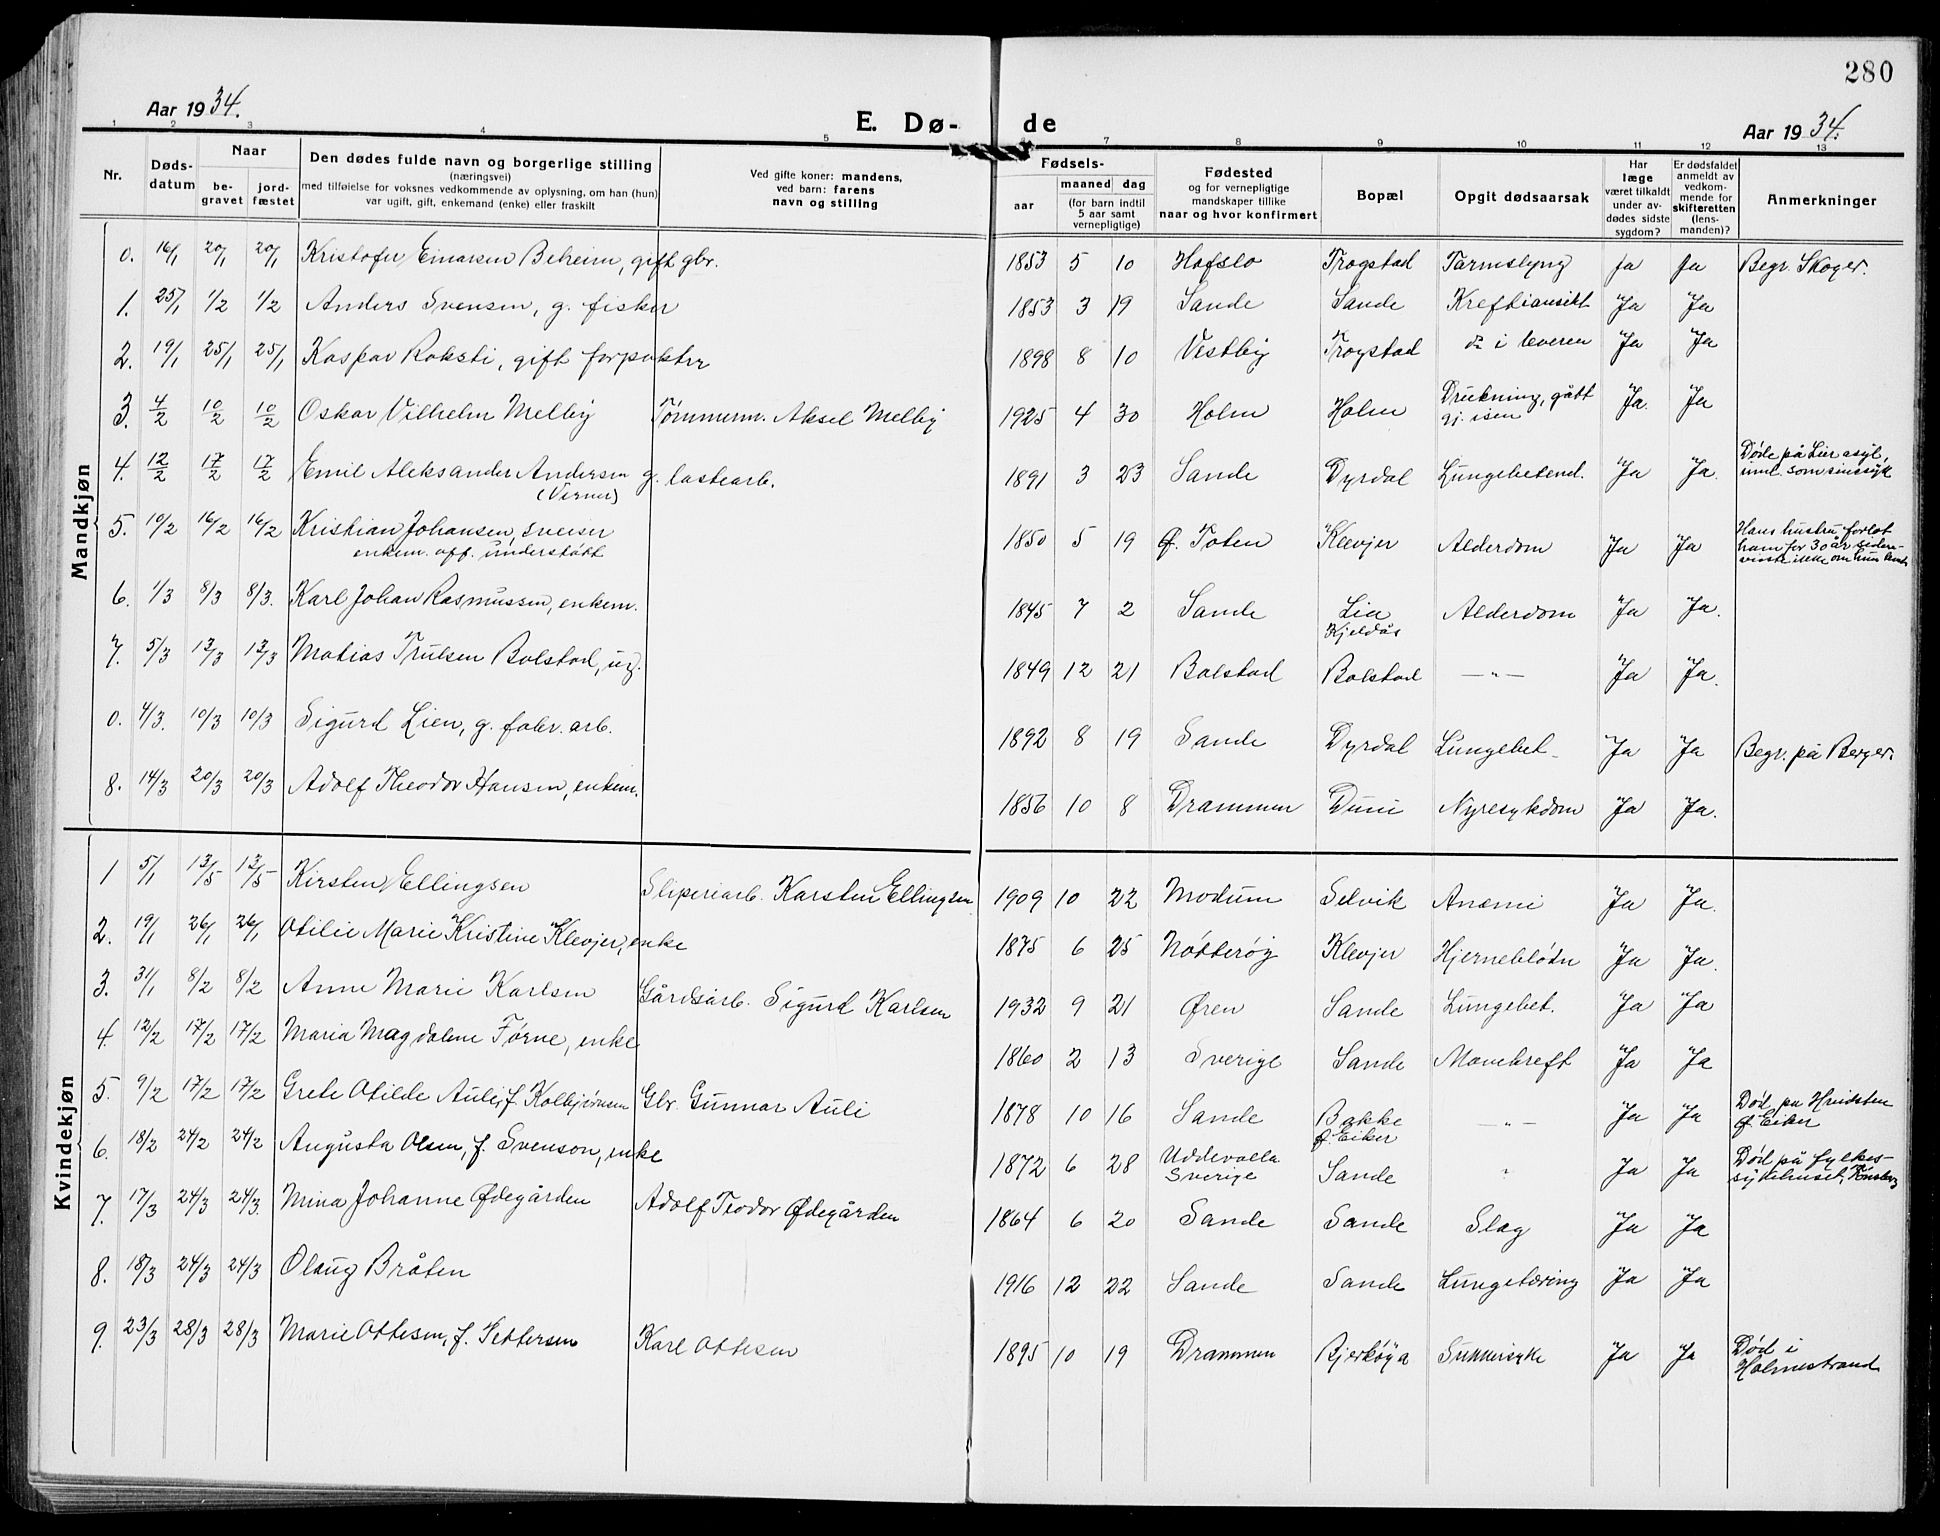 280
Aar 1934.
E. Dø-de
Aar 1934.
1 2 3 4 5 7 8 9 10 11 12 13
Nr.
Døds-datum
Naar
be-gravet
jord-fæstet
Den dødes fulde navn og borgerlige stilling
(næringsvei)
med tilføielse for voksnes vedkommende av oplysning, om han (hun)
var ugift, gift, enkemand (enke) eller fraskilt
Ved gifte koner: mandens,
ved barn: farens
navn og stilling
Fødsels-
aar
maaned
dag
(for barn indtil
5 aar samt
vernepligtige)
Fødested
og for vernepligtige
mandskaper tillike
naar og hvor konfirmert
Bopæl
Opgit dødsaarsak
Har
læge
været tilkaldt
under av-
dødes sidste
sygdom?
Er dødsfaldet
anmeldt av
vedkom-
mende for
skifteretten
(lens-
manden)?
Anmerkninger
Mandkjøn
0. 16/1 20/1 20/1 Kristofer Einarsen Beheim, gift gbr. 1853 5 10 Hofslo Trogstad Tarmslyng Ja Ja Begr. Skoger.
1. 25/1 1/2 1/2 Anders Svensen, g. fisker 1853 3 19 Sande Sande Kreft i ansikt Ja Ja
2. 19/1 25/1 25/1 Kaspar Roksti, gift forpakter 1898 8 10 Vestby Trogstad do i leveren Ja Ja
3. 4/2 10/2 10/2 Oskar Vilhelm Melby Tømmerm. Aksel Melby 1925 4 30 Holm Holm Drukning, gått
gj. isen Ja. Ja
4. 12/2 17/2 17/2 Emil Aleksander Andersen g. lastearb. 1891 3 23 Sande Dyrdal Lungebetend. Ja Ja. Døde på Lier asyl,
innl. som sinssyk
(Verner)
5. 10/2 16/2 16/2 Kristian Johansen, sveiser
enkem. off. understøtt 1850 5 19 Ø. Toten Klevjer Alderdom Ja Ja Hans hustru forlot
ham for 30 år siden -
visste ikke om hun
6. 1/3 8/3 8/3. Karl Johan Rasmussen, enkem. 1845 7 2 Sande Lia
Kjeldås Alderdom Ja Ja.
7. 5/3 12/3 12/3 Matias Trulsen Bolstad, ug. 1849 12 21 Bolstad Bolstad —"— Ja Ja.
0. 4/3. 10/3 10/3 Sigurd Lien, g. fabr. arb. 1892 8 19 Sande Dyrdal Lungebet. Ja Ja Begr. på Berger.
8. 14/3 20/3 20/3 Adolf Theodor Hansen, enkem. 1856 10 8 Drammen Duni Nyresykdom Ja Ja.
Kvindekjøn
1 5/1 13/5 13/5 Kirsten Ellingsen Sliperiarb. Karsten Ellingsen 1909 10 22 Modum Selvik Anæmi Ja Ja.
2. 19/1 26/1 26/1 Otilie Marie Kristine Klevjer, enke 1875 6 25 Nøtterøy Klevjer Hjerneblødn Ja Ja.
3. 31/1 8/2 8/2 Anne Marie Karlsen Gårdsarb. Sigurd Karlsen 1932 9 21 Øren Sande Lungebet. Ja Ja
4. 12/2 17/2 17/2 Maria Magdalene Førne, enke 1860 2 13 Sverige Sande Mavekreft Ja Ja
5. 9/2 17/2 17/2 Grete Otilde Auli, f. Kolbjørnsen Gbr. Gunnar Auli 1878 10 16 Sande Bakke
Ø. Eiker —"— Ja Ja Død på Hvidsten
Ø. Eiker
6. 18/2 24/2 24/2 Augusta Olsen, f. Svenson, enke 1872 6 28 Uddevalla
Sverige Sande " Ja Ja Død på fylkes-
sykehuset, Tønsberg
7. 17/3 24/3 24/3. Mina Johanne Ødegården Adolf Teodor Ødegården 1864 6 20 Sande Sande Slag Ja Ja
8. 18/3 24/3 24/3 Olaug Bråten 1916 12 22 Sande Sande Lungetæring Ja Ja
9. 23/3 28/3 28/3 Marie Ottesen, f. Pettersen Karl Ottesen 1895 10 19 Drammen Bjerkøya Sukkersyke Ja Ja Død i
Holmestrand